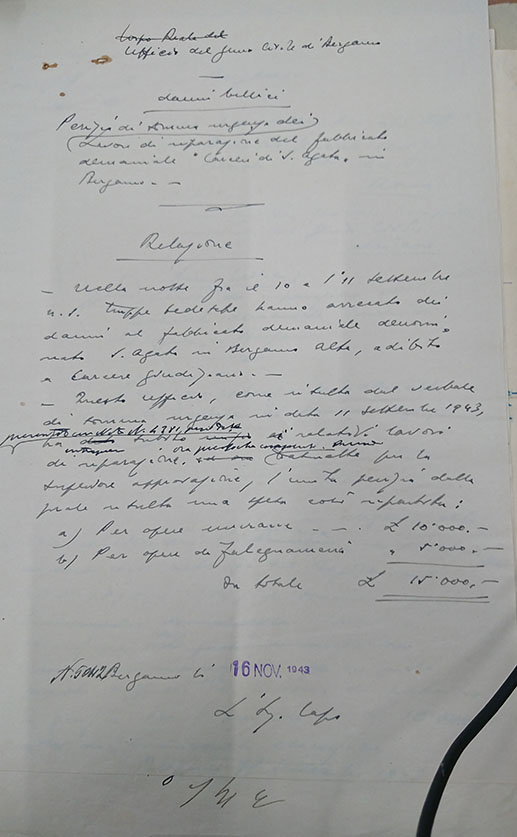 Corpo Reale del
Ufficio del Genio Civile di Bergamo
danni bellici
Perizia di somma urgenza dei
lavori di riparazione del fabbricato
demaniale "Carceri di S. Agata" in
Bergamo. -
Relazione
- Nella notte fra il 10 e l'11 settembre
u.s. truppe tedesche hanno arrecato dei
danni al fabbricato demaniale denomi-
nato S. Agata in Bergamo Alta, adibito
a Carcere giudiziario. -
- Questo ufficio, come risulta dal verbale
di somma urgenza in data 11 settembre 1943,
ha relativi lavori
di riparazione. per la
superiore approvazione, l'unita perizia dalla
quale risulta una spesa così ripartita:
a) Per opere murarie - - . £ 10'000.-
b) Per opere da falegnameria " 5'000.-
In totale £ 15'000.-
N. 5042 Bergamo li 16 NOV. 1943
L'Ing. Capo